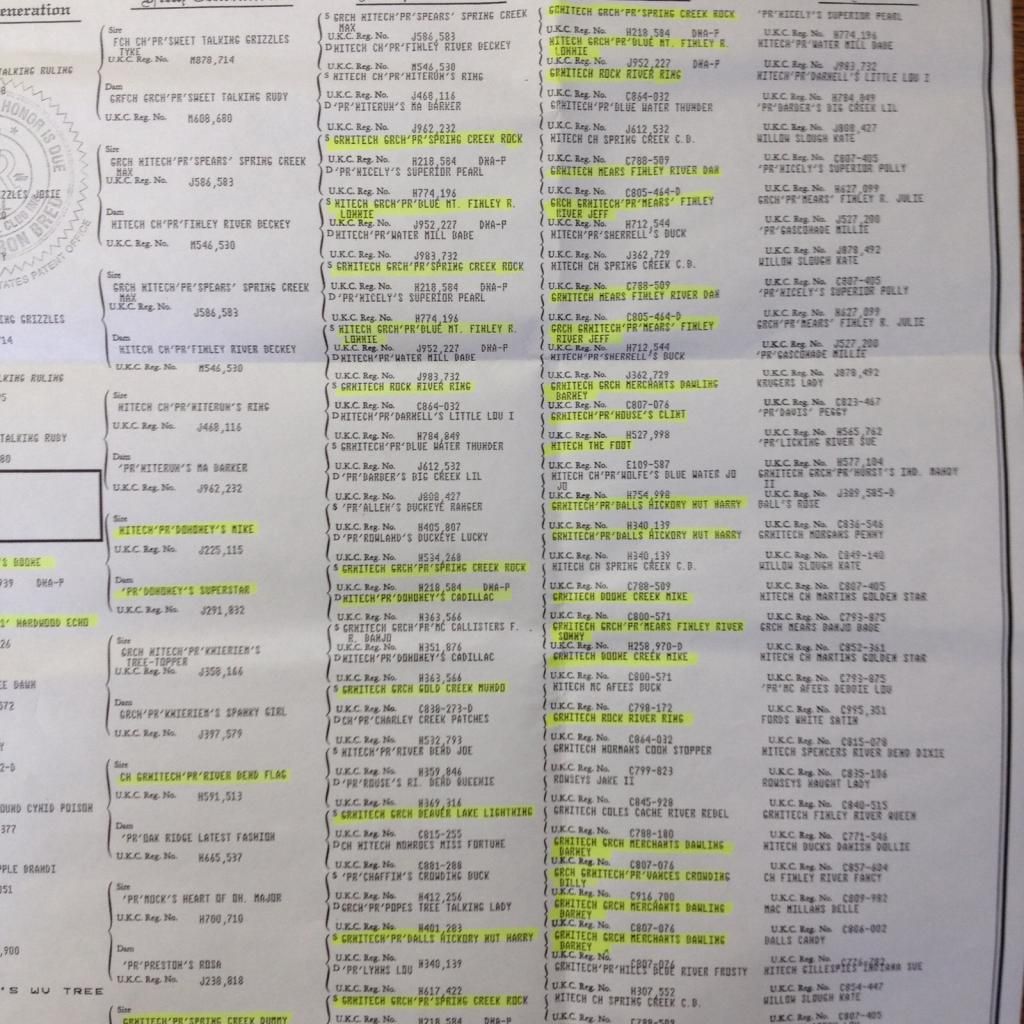 eneration
TALKING RULING
ZZLES JOSIE
HONOR IS DUE
NG GRIZZLES
14
LKING RULING
TALKING RUBY
80
939 DNA-P
S' HARDWOOD ECHO
26
EE DAWN
572
2-D
OUND CYHID POISON
377
PPLE BRANDI
351
,900
'S WV TREE
Sire
FCH CH'PR'SWEET TALKING GRIZZLES
TYKE
U.K.C. Reg. No. M878,714
Dam
GRFCH GRCH'PR'SWEET TALKING RUBY
U.K.C. Reg. No. M608,680
Sire
GRCH NITECH'PR'SPEARS' SPRING CREEK
MAX
U.K.C. Reg. No. J586,583
Dam
NITECH CH'PR'FINLEY RIVER BECKEY
U.K.C. Reg. No. M546,530
Sire
GRCH NITECH'PR'SPEARS' SPRING CREEK
MAX
U.K.C. Reg. No. J586,583
Dam
NITECH CH'PR'FINLEY RIVER BECKEY
U.K.C. Reg. No. M546,530
Sire
NITECH CH'PR'NITERUN'S RING
U.K.C. Reg. No. J468,116
Dam
'PR'NITERUN'S MA BARKER
U.K.C. Reg. No. J962,232
Sire
NITECH'PR'DOHONEY'S MIKE
U.K.C. Reg. No. J225,115
Dam
'PR'DOHONEY'S SUPERSTAR
U.K.C. Reg. No. J291,832
Sire
GRCH NITECH'PR'KNIERIEM'S
TREE-TOPPER
U.K.C. Reg. No. J358,166
Dam
GRCH'PR'KNIERIEM'S SPANKY GIRL
U.K.C. Reg. No. J397,579
Sire
CH GRNITECH'PR'RIVER BEND FLAG
U.K.C. Reg. No. H591,513
Dam
'PR'OAK RIDGE LATEST FASHION
U.K.C. Reg. No. H665,537
Sire
'PR'MOCK'S HEART OF OH. MAJOR
U.K.C. Reg. No. H700,710
Dam
'PR'PRESTON'S ROSA
U.K.C. Reg. No. J238,818
Sire
GRNITECH'PR'SPRING CREEK DUMMY
S GRCH NITECH'PR'SPEARS' SPRING CREEK
MAX
U.K.C. Reg. No. J586,583
D NITECH CH'PR'FINLEY RIVER BECKEY
U.K.C. Reg. No. M546,530
S NITECH CH'PR'NITERUN'S RING
U.K.C. Reg. No. J468,116
D 'PR'NITERUN'S MA BARKER
U.K.C. Reg. No. J962,232
S GRNITECH GRCH'PR'SPRING CREEK ROCK
U.K.C. Reg. No. H218,584 DNA-P
D 'PR'NICELY'S SUPERIOR PEARL
U.K.C. Reg. No. H774,196
S NITECH GRCH'PR'BLUE MT. FINLEY R.
LONNIE
U.K.C. Reg. No. J952,227 DNA-P
D NITECH'PR'WATER MILL BABE
U.K.C. Reg. No. J983,732
S GRNITECH GRCH'PR'SPRING CREEK ROCK
U.K.C. Reg. No. H218,584 DNA-P
D 'PR'NICELY'S SUPERIOR PEARL
U.K.C. Reg. No. H774,196
S NITECH GRCH'PR'BLUE MT. FINLEY R.
LONNIE
U.K.C. Reg. No. J952,227 DNA-P
D NITECH'PR'WATER MILL BABE
U.K.C. Reg. No. J983,732
S GRNITECH ROCK RIVER RING
U.K.C. Reg. No. C864-032
D NITECH'PR'DARNELL'S LITTLE LOU I
U.K.C. Reg. No. H784,849
S GRNITECH'PR'BLUE WATER THUNDER
U.K.C. Reg. No. J612,532
D 'PR'BARBER'S BIG CREEK LIL
U.K.C. Reg. No. J808,427
S 'PR'ALLEN'S BUCKEYE RANGER
U.K.C. Reg. No. H405,807
D 'PR'ROWLAND'S BUCKEYE LUCKY
U.K.C. Reg. No. H534,268
S GRNITECH GRCH'PR'SPRING CREEK ROCK
U.K.C. Reg. No. H218,584 DNA-P
D NITECH'PR'DOHONEY'S CADILLAC
U.K.C. Reg. No. H363,566
S GRNITECH GRCH'PR'MC CALLISTERS F.
R. BANJO
U.K.C. Reg. No. H351,876
D NITECH'PR'DOHONEY'S CADILLAC
U.K.C. Reg. No. H363,566
S GRNITECH GRCH GOLD CREEK MUNDO
U.K.C. Reg. No. C838-273-D
D CH'PR'CHARLEY CREEK PATCHES
U.K.C. Reg. No. H532,793
S NITECH'PR'RIVER BEND JOE
U.K.C. Reg. No. H359,846
D 'PR'ROUSE'S RI. BEND QUEENIE
U.K.C. Reg. No. H369,316
S GRNITECH GRCH BEAVER LAKE LIGHTNING
U.K.C. Reg. No. C815-255
D CH NITECH MONROES MISS FORTUNE
U.K.C. Reg. No. C881-288
S 'PR'CHAFFIN'S CROWDING BUCK
U.K.C. Reg. No. H412,256
D GRCH'PR'POPES TREE TALKING LADY
U.K.C. Reg. No. H401,283
S GRNITECH'PR'BALLS HICKORY NUT HARRY
U.K.C. Reg. No. H340,139
D 'PR'LYNNS LOU
U.K.C. Reg. No. H617,422
S GRNITECH GRCH'PR'SPRING CREEK ROCK
U.K.C. Reg. No. H218,584 DNA-P
GRNITECH GRCH'PR'SPRING CREEK ROCK
U.K.C. Reg. No. H218,584 DNA-P
NITECH GRCH'PR'BLUE MT. FINLEY R.
LONNIE
U.K.C. Reg. No. J952,227 DNA-P
GRNITECH ROCK RIVER RING
U.K.C. Reg. No. C864-032
GRNITECH'PR'BLUE WATER THUNDER
U.K.C. Reg. No. J612,532
NITECH CH SPRING CREEK C.B.
U.K.C. Reg. No. C788-509
GRNITECH MEARS FINLEY RIVER DAN
U.K.C. Reg. No. C805-464-D
GRCH GRNITECH'PR'MEARS' FINLEY
RIVER JEFF
U.K.C. Reg. No. H712,544
NITECH'PR'SHERRELL'S BUCK
U.K.C. Reg. No. J362,729
NITECH CH SPRING CREEK C.B.
U.K.C. Reg. No. C788-509
GRNITECH MEARS FINLEY RIVER DAN
U.K.C. Reg. No. C805-464-D
GRCH GRNITECH'PR'MEARS' FINLEY
RIVER JEFF
U.K.C. Reg. No. H712,544
NITECH'PR'SHERRELL'S BUCK
U.K.C. Reg. No. J362,729
GRNITECH GRCH MERCHANTS BAWLING
BARNEY
U.K.C. Reg. No. C807-076
GRNITECH'PR'HOUSE'S CLINT
U.K.C. Reg. No. H527,998
NITECH THE FOOT
U.K.C. Reg. No. E109-587
NITECH CH'PR'WOLFE'S BLUE WATER JO
JO
U.K.C. Reg. No. H754,998
GRNITECH'PR'BALLS HICKORY NUT HARRY
U.K.C. Reg. No. H340,139
GRNITECH'PR'BALLS HICKORY NUT HARRY
U.K.C. Reg. No. H340,139
NITECH CH SPRING CREEK C.B.
U.K.C. Reg. No. C788-509
GRNITECH BOONE CREEK MIKE
U.K.C. Reg. No. C800-571
GRNITECH GRCH'PR'MEARS FINLEY RIVER
SONNY
U.K.C. Reg. No. H258,970-D
GRNITECH BOONE CREEK MIKE
U.K.C. Reg. No. C800-571
NITECH MC AFEES BUCK
U.K.C. Reg. No. C798-172
GRNITECH ROCK RIVER RING
U.K.C. Reg. No. C864-032
GRNITECH NORMANS COON STOPPER
U.K.C. Reg. No. C799-823
ROWSEYS JAKE II
U.K.C. Reg. No. C845-928
GRNITECH COLES CACHE RIVER REBEL
U.K.C. Reg. No. C788-180
GRNITECH GRCH MERCHANTS BAWLING
BARNEY
U.K.C. Reg. No. C807-076
GRCH GRNITECH'PR'VANCES CROWDING
BILLY
U.K.C. Reg. No. C916,700
GRNITECH GRCH MERCHANTS BAWLING
BARNEY
U.K.C. Reg. No. C807-076
GRNITECH GRCH MERCHANTS BAWLING
BARNEY
U.K.C. Reg. No. C807-076
GRNITECH'PR'HILLS BLUE RIVER FROSTY
U.K.C. Reg. No. H307,552
NITECH CH SPRING CREEK C.B.
U.K.C. Reg. No. C788-509
'PR'NICELY'S SUPERIOR PEARL
U.K.C. Reg. No. H774,196
NITECH'PR'WATER MILL BABE
U.K.C. Reg. No. J983,732
NITECH'PR'DARNELL'S LITTLE LOU I
U.K.C. Reg. No. H784,849
'PR'BARBER'S BIG CREEK LIL
U.K.C. Reg. No. J808,427
WILLOW SLOUGH KATE
U.K.C. Reg. No. C807-405
'PR'NICELY'S SUPERIOR POLLY
U.K.C. Reg. No. H627,099
GRCH'PR'MEARS' FINLEY R. JULIE
U.K.C. Reg. No. J527,200
'PR'GASCONADE MILLIE
U.K.C. Reg. No. J878,492
WILLOW SLOUGH KATE
U.K.C. Reg. No. C807-405
'PR'NICELY'S SUPERIOR POLLY
U.K.C. Reg. No. H627,099
GRCH'PR'MEARS' FINLEY R. JULIE
U.K.C. Reg. No. J527,200
'PR'GASCONADE MILLIE
U.K.C. Reg. No. J878,492
KRUGERS LADY
U.K.C. Reg. No. C823-467
'PR'DAVIS' PEGGY
U.K.C. Reg. No. H565,762
'PR'LICKING RIVER SUE
U.K.C. Reg. No. H577,104
GRNITECH GRCH'PR'HURST'S IND. MANDY
II
U.K.C. Reg. No. J389,585-D
BALL'S ROSE
U.K.C. Reg. No. C836-546
GRNITECH MORGANS PENNY
U.K.C. Reg. No. C849-140
WILLOW SLOUGH KATE
U.K.C. Reg. No. C807-405
NITECH CH MARTINS GOLDEN STAR
U.K.C. Reg. No. C793-875
GRCH MEARS BANJO BABE
U.K.C. Reg. No. C852-361
NITECH CH MARTINS GOLDEN STAR
U.K.C. Reg. No. C793-875
'PR'MC AFEES DEBBIE LOU
U.K.C. Reg. No. C995,351
FORDS WHITE SATIN
U.K.C. Reg. No. C815-078
NITECH SPENCERS RIVER BEND DIXIE
U.K.C. Reg. No. C835-106
ROWSEYS NAUGHT LADY
U.K.C. Reg. No. C840-515
GRNITECH FINLEY RIVER QUEEN
U.K.C. Reg. No. C771-546
NITECH BUCKS DANISH DOLLIE
U.K.C. Reg. No. C857-604
CH FINLEY RIVER FANCY
U.K.C. Reg. No. C809-982
MAC MILLANS BELLE
U.K.C. Reg. No. C806-002
BALLS CANDY
U.K.C. Reg. No.
NITECH GILLESPIES INDIANA SUE
U.K.C. Reg. No. C854-447
WILLOW SLOUGH KATE
U.K.C. Reg. No. C807-405